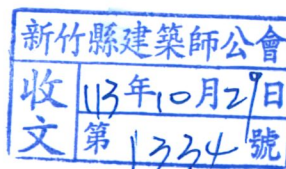 新竹縣建築師公會
收文
113年10月29日
第1334號